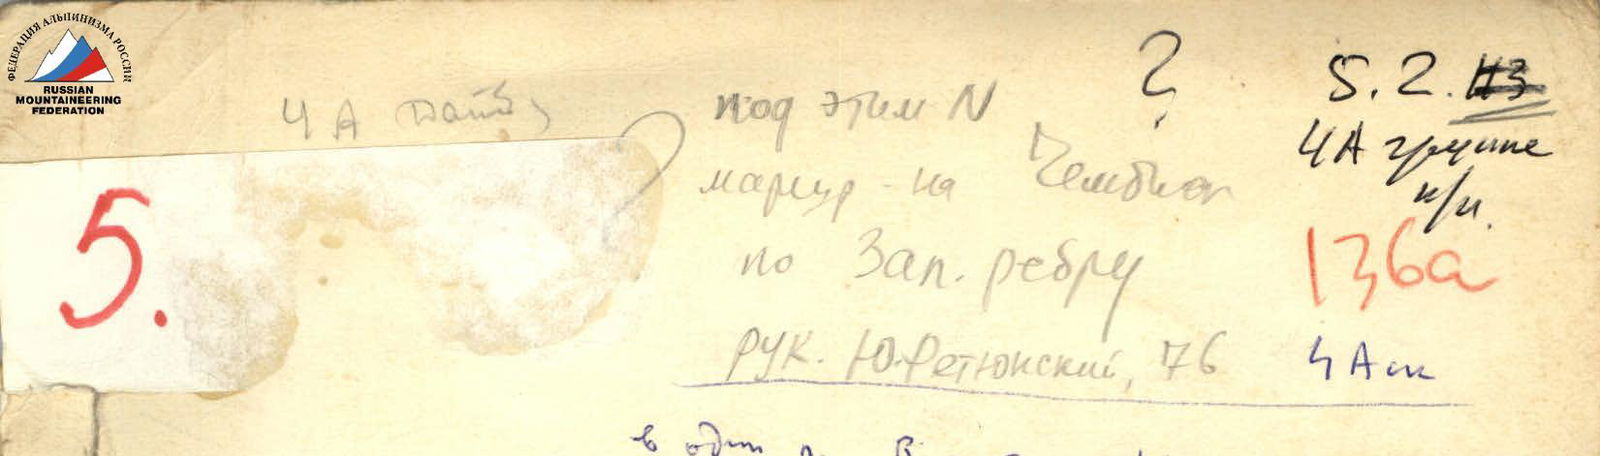 ФЕДЕРАЦИЯ АЛЬПИНИЗМА РОССИИ
RUSSIAN
MOUNTAINEERING
FEDERATION
4А
5.
под этим N
?
маршр - на Чембион
по Зап. ребру
рук. Ю.Ретюнский, 76
5.2.
4А группе
н/п.
136а
4А
в один